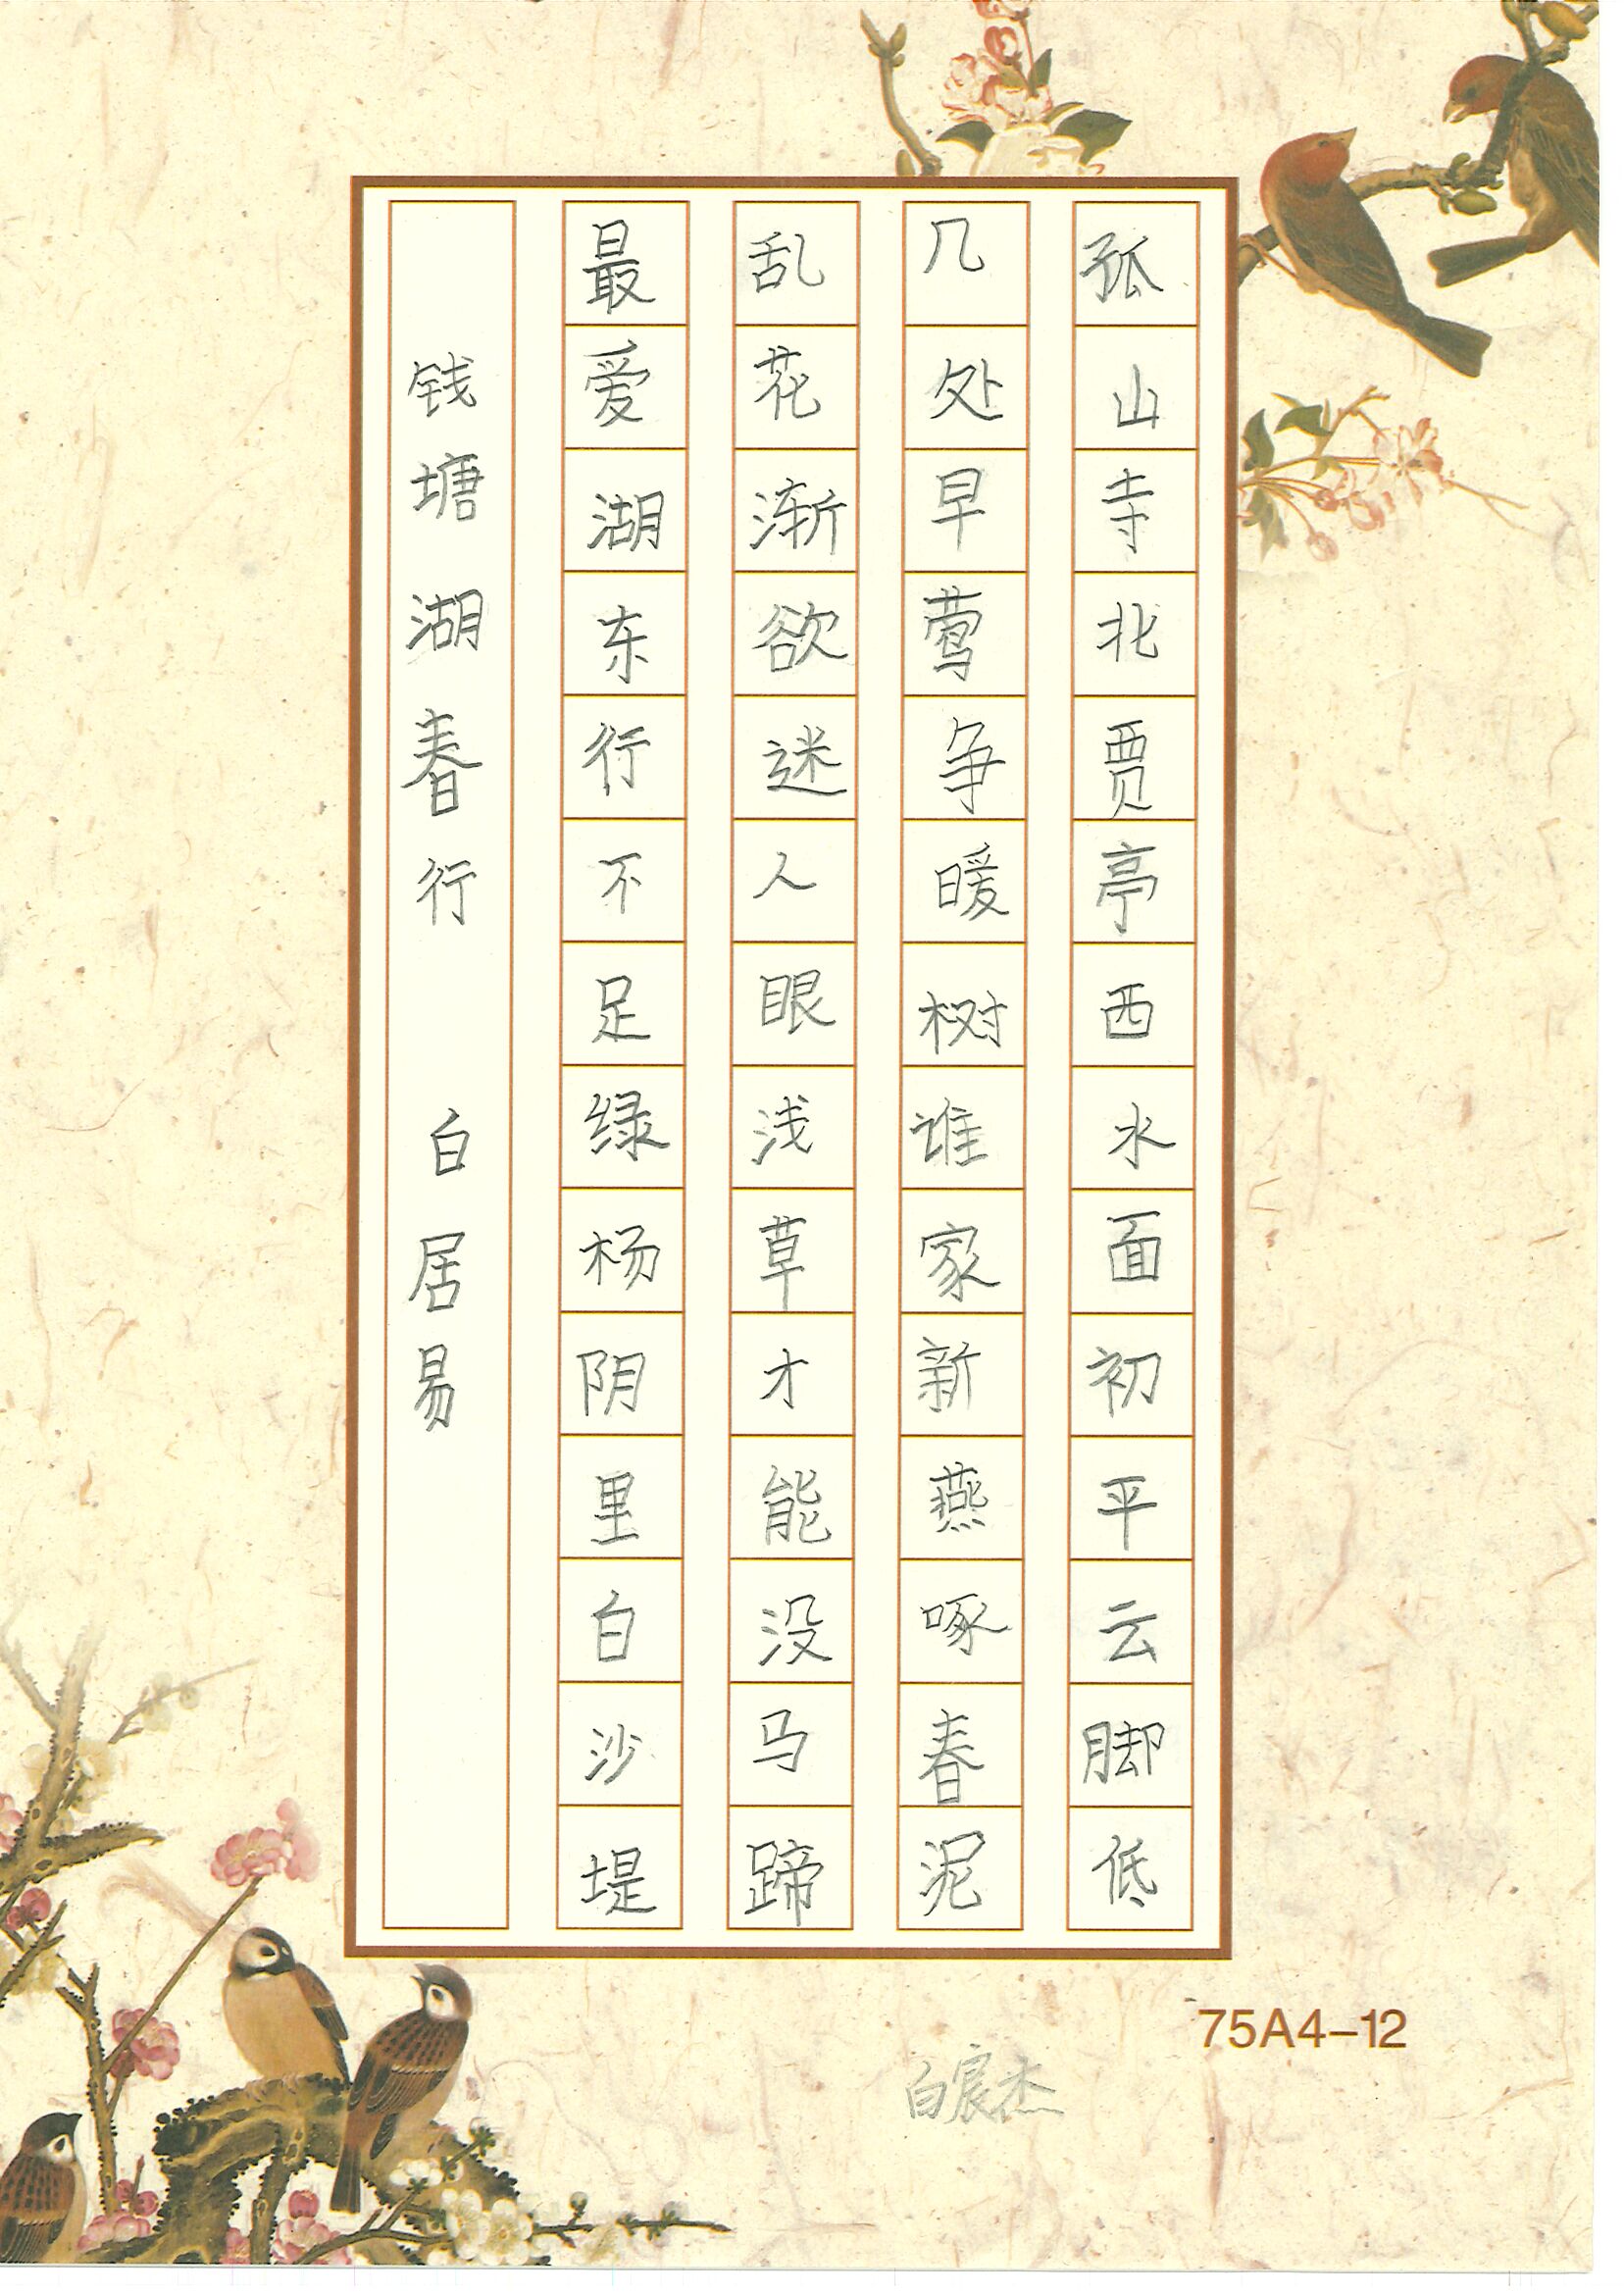 孤山寺北贾亭西水面初平云脚低
几处早莺争暖树谁家新燕啄春泥
乱花渐欲迷人眼浅草才能没马蹄
最爱湖东行不足绿杨阴里白沙堤
钱塘湖春行 白居易
75A4-12
白宸杰